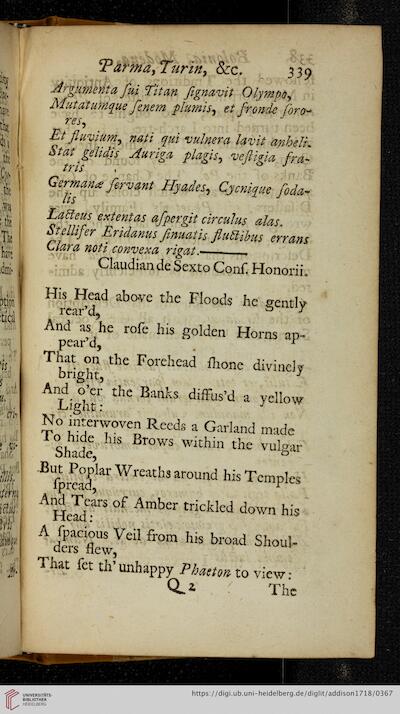 Parma, Turin, &c. 339
Argumenta ſui Titan ſignavit Olympo,
Mutatumque ſenem plumis, et fronde ſoro-
res,
Et fluvium, nati qui vulnera lavit anheli.
Stat gelidis Auriga plagis, veſtigia fra-
tris
Germanæ ſervant Hyades, Cycnique ſoda-
lis
Lacteus extentas aſpergit circulus alas.
Stellifer Eridanus ſinuatis fluctibus errans
Clara noti convexa rigat.
Claudian de Sexto Conſ. Honorii.
His Head above the Floods he gently
rear'd,
And as he roſe his golden Horns ap-
pear'd,
That on the Forehead ſhone divinely
bright,
And o'er the Banks diffus'd a yellow
Light:
No interwoven Reeds a Garland made
To hide his Brows within the vulgar
Shade,
But Poplar Wreaths around his Temples
ſpread,
And Tears of Amber trickled down his
Head:
A ſpacious Veil from his broad Shoul-
ders flew,
That ſet th' unhappy Phaeton to view:
Q 2 The
UNIVERSITÄTS-
BIBLIOTHEK
HEIDELBERG
https://digi.ub.uni-heidelberg.de/diglit/addison1718/0367